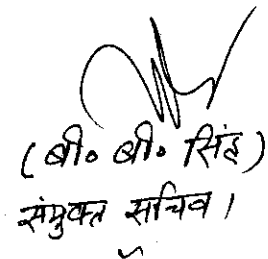 (बी० बी० सिंह)
संयुक्त सचिव।